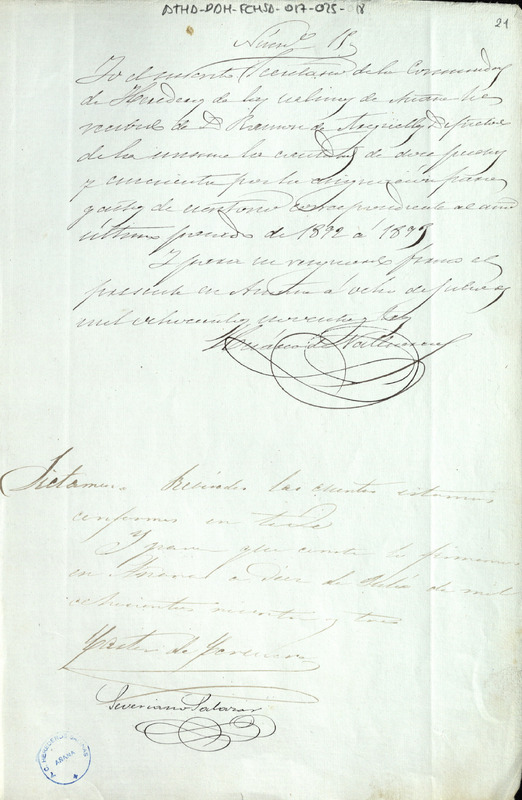 ATHA-DAH-FCHSD-017-025-18
21
Núm.º 18
Yo el infrascrito Secretario de la Comunidad
de Herederos de las salinas de Añana he
recibido de D. Ramon de
de la misma la cantidad de doce pesetas
y cincuenta por la asignación para
gastos de correspondiente al año
último pasado de 1892 á 1893
Y para su resguardo firmo el
presente en Añana á ocho de Julio de
mil ochocientos noventa y tres
Dictamen. Revisadas las cuentas estamos
conformes en todo
Y para que conste lo firmamos
en Añana a diez de Julio de mil
ochocientos noventa y tres
Severiano Salazar
AÑANA